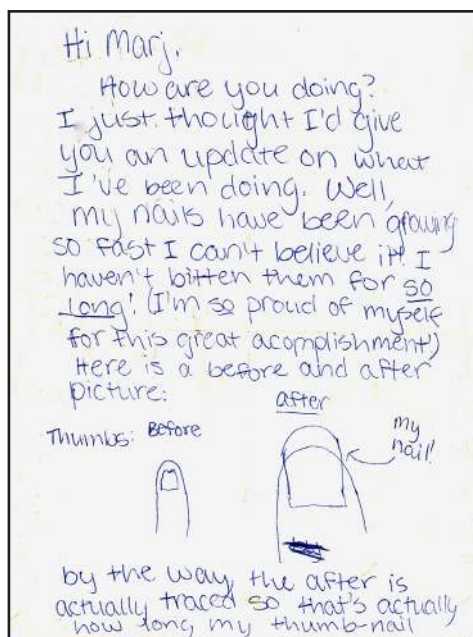 Hi Marj,
How are you doing?
I just thought I'd give
you an update on what
I've been doing. Well,
my nails have been growing
so fast I can't believe it! I
haven't bitten them for so
long! (I'm so proud of myself
for this great acomplishment)
Here is a before and after
picture:
after
Thumbs: Before
my
nail!
by the way, the after is
actually traced so that's actually
how long my thumb-nail